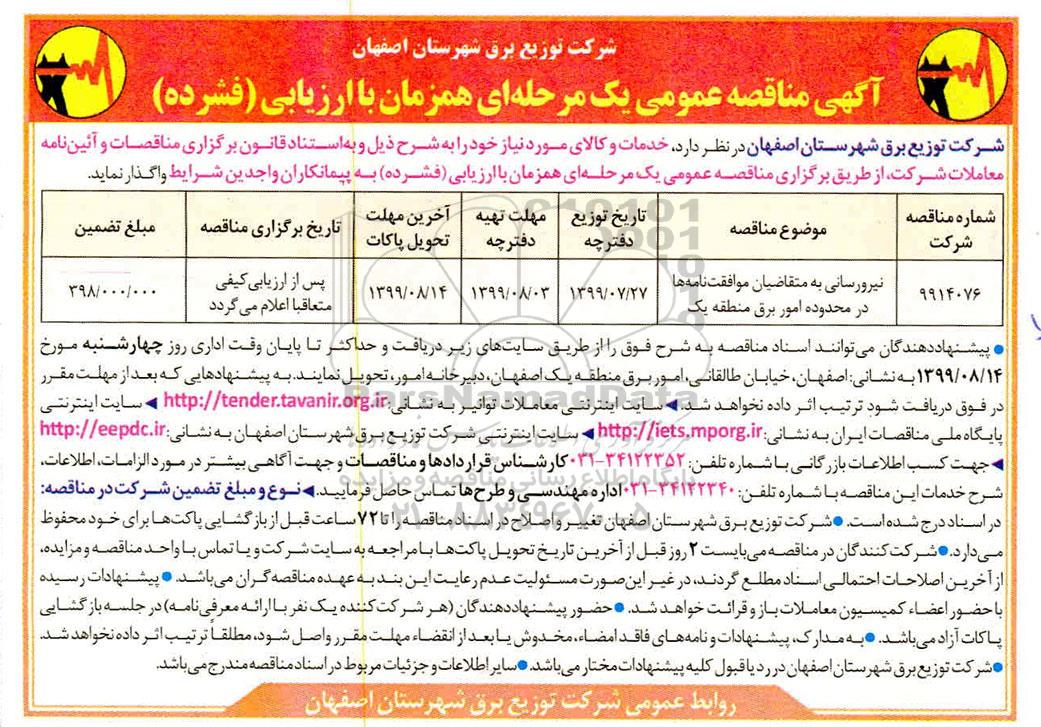 شرکت توزیع برق شهرستان اصفهان
آگهی مناقصه عمومی یک مرحله‌ای همزمان با ارزیابی (فشرده)
شرکت توزیع برق شهرستان اصفهان در نظر دارد، خدمات و کالای مورد نیاز خود را به شرح ذیل و به‌استناد قانون برگزاری مناقصات و آئین‌نامه
معاملات شرکت، از طریق برگزاری مناقصه عمومی یک مرحله‌ای همزمان با ارزیابی (فشرده) به پیمانکاران واجدین شرایط واگذار نماید.
شماره مناقصه شرکت	موضوع مناقصه	تاریخ توزیع دفترچه	مهلت تهیه دفترچه	آخرین مهلت تحویل پاکات	تاریخ برگزاری مناقصه	مبلغ تضمین
۹۹۱۴۰۷۶	نیرورسانی به متقاضیان موافقت‌نامه‌ها در محدوده امور برق منطقه یک	۱۳۹۹/۰۷/۲۷	۱۳۹۹/۰۸/۰۳	۱۳۹۹/۰۸/۱۴	پس از ارزیابی کیفی متعاقبا اعلام می گردد	۳۹۸/۰۰۰/۰۰۰
● پیشنهاددهندگان می‌توانند اسناد مناقصه به شرح فوق را از طریق سایت‌های زیر دریافت و حداکثر تا پایان وقت اداری روز چهارشنبه مورخ
۱۳۹۹/۰۸/۱۴ به نشانی: اصفهان، خیابان طالقانی، امور برق منطقه یک اصفهان، دبیرخانه امور، تحویل نمایند. به پیشنهادهایی که بعد از مهلت مقرر
در فوق دریافت شود ترتیب اثر داده نخواهد شد. ◄ سایت اینترنتی معاملات توانیر به نشانی: http://tender.tavanir.org.ir ◄ سایت اینترنتی
پایگاه ملی مناقصات ایران به نشانی: http://iets.mporg.ir ◄ سایت اینترنتی شرکت توزیع برق شهرستان اصفهان به نشانی: http://eepdc.ir
◄ جهت کسب اطلاعات بازرگانی با شماره تلفن: ۳۴۱۲۲۳۵۲-۰۳۱ کارشناس قراردادها و مناقصات و جهت آگاهی بیشتر در مورد الزامات، اطلاعات،
شرح خدمات این مناقصه با شماره تلفن: ۳۴۱۲۲۳۴۰-۰۳۱ اداره مهندسی و طرح‌ها تماس حاصل فرمایید. ◄ نوع و مبلغ تضمین شرکت در مناقصه:
در اسناد درج شده است. ● شرکت توزیع برق شهرستان اصفهان تغییر و اصلاح در اسناد مناقصه را تا ۷۲ ساعت قبل از بازگشایی پاکت‌ها برای خود محفوظ
می‌دارد. ● شرکت‌کنندگان در مناقصه می‌بایست ۲ روز قبل از آخرین تاریخ تحویل پاکت‌ها با مراجعه به سایت شرکت و یا تماس با واحد مناقصه و مزایده،
از آخرین اصلاحات احتمالی اسناد مطلع گردند، در غیر این‌صورت مسئولیت عدم رعایت این بند به عهده مناقصه‌گران می‌باشد. ● پیشنهادات رسیده
با حضور اعضاء کمیسیون معاملات باز و قرائت خواهد شد. ● حضور پیشنهاددهندگان (هر شرکت‌کننده یک نفر با ارائه معرفی‌نامه) در جلسه بازگشایی
پاکات آزاد می‌باشد. ● به مدارک، پیشنهادات و نامه‌های فاقد امضاء، مخدوش یا بعد از انقضاء مهلت مقرر واصل شود، مطلقاً ترتیب اثر داده نخواهد شد.
● شرکت توزیع برق شهرستان اصفهان در رد یا قبول کلیه پیشنهادات مختار می‌باشد. ● سایر اطلاعات و جزئیات مربوط در اسناد مناقصه مندرج می‌باشد.
روابط عمومی شرکت توزیع برق شهرستان اصفهان
ParsNamadData
پایگاه اطلاع رسانی مناقصه و مزایده
۰۲۱-۸۸۳۴۹۶۷۰-۵